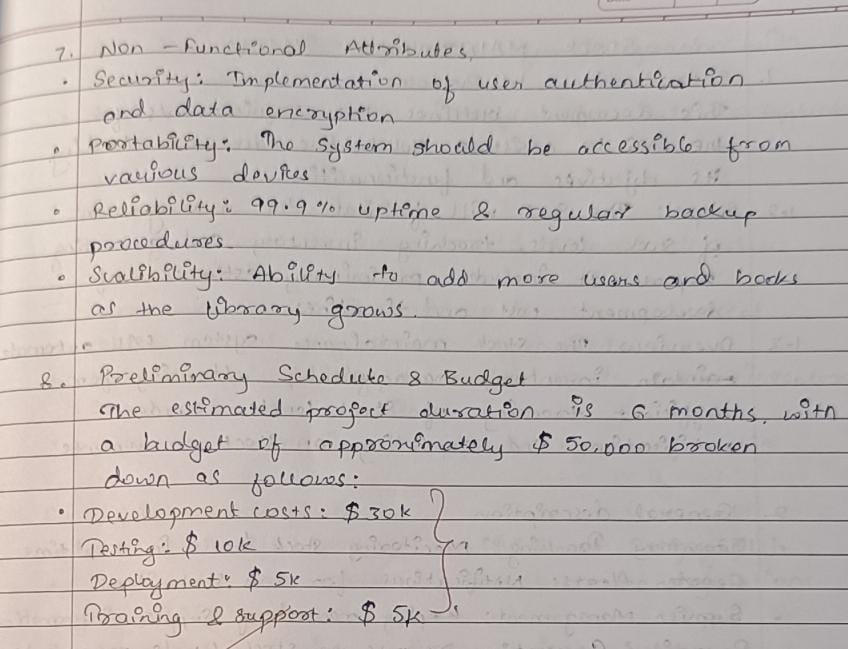 7. Non-Functional Attributes.
• Security: Implementation of user authentication
and data encryption
• Portability: The system should be accessible from
various devices
• Reliability: 99.9% uptime & regular backup
procedures.
• Scalibility: Ability to add more users and books
as the library grows.
8. Preliminary Schedule & Budget
The estimated project duration is 6 months. with
a budget of approximately $50,000 broken
down as follows:
• Development costs: $30k
Testing: $10k
Deployment: $5k
Training & support: $5k